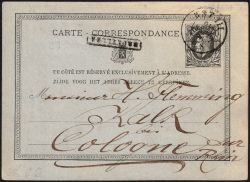 CARTE - CORRESPONDANCE
CE CÔTÉ EST RÉSERVÉ EXCLUSIVEMENT À L'ADRESSE.
ZIJDE VOOR HET ADRES ALLEEN TE
Monsieur H. Flemming
Kalk
bei
Cologne
sur
Rhein